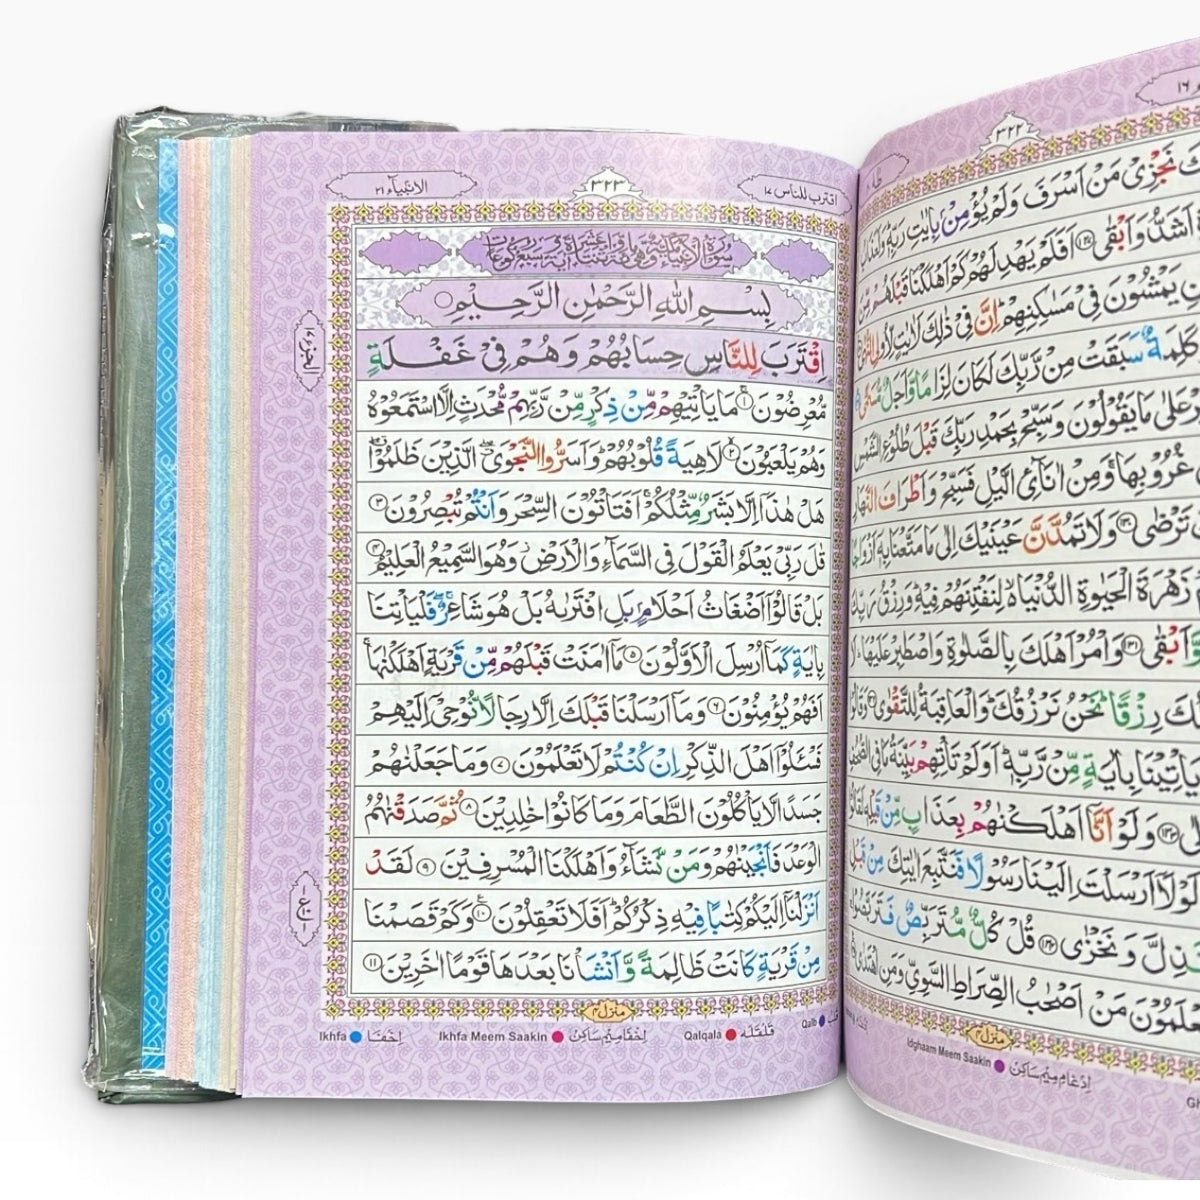 اقترب للناس ١٧
٣٢٣
الانبیآء ٢١
بِسْمِ اللهِ الرَّحْمٰنِ الرَّحِیْمِ
اِقْتَرَبَ لِلنَّاسِ حِسَابُهُمْ وَهُمْ فِیْ غَفْلَةٍ
مُّعْرِضُوْنَ ۚ﴿١﴾ مَا یَاْتِیْهِمْ مِّنْ ذِكْرٍ مِّنْ رَّبِّهِمْ مُّحْدَثٍ اِلَّا اسْتَمَعُوْهُ
وَهُمْ یَلْعَبُوْنَ ﴿٢﴾ لَاهِیَةً قُلُوْبُهُمْ ؕ وَاَسَرُّوا النَّجْوَی ۖ الَّذِیْنَ ظَلَمُوْا
هَلْ هٰذَاۤ اِلَّا بَشَرٌ مِّثْلُكُمْ ۚ اَفَتَاْتُوْنَ السِّحْرَ وَاَنْتُمْ تُبْصِرُوْنَ ﴿٣﴾
قٰلَ رَبِّیْ یَعْلَمُ الْقَوْلَ فِی السَّمَآءِ وَالْاَرْضِ ؗ وَهُوَ السَّمِیْعُ الْعَلِیْمُ ﴿٤﴾
بَلْ قَالُوْۤا اَضْغَاثُ اَحْلَامٍۭ بَلِ افْتَرٰىهُ بَلْ هُوَ شَاعِرٌ ۖۚ فَلْیَاْتِنَا
بِاٰیَةٍ كَمَاۤ اُرْسِلَ الْاَوَّلُوْنَ ﴿٥﴾ مَاۤ اٰمَنَتْ قَبْلَهُمْ مِّنْ قَرْیَةٍ اَهْلَكْنٰهَا ۚ
اَفَهُمْ یُؤْمِنُوْنَ ﴿٦﴾ وَمَاۤ اَرْسَلْنَا قَبْلَكَ اِلَّا رِجَالًا نُّوْحِیْۤ اِلَیْهِمْ
فَسْـَٔلُوْۤا اَهْلَ الذِّكْرِ اِنْ كُنْتُمْ لَا تَعْلَمُوْنَ ﴿٧﴾ وَمَا جَعَلْنٰهُمْ
جَسَدًا لَّا یَاْكُلُوْنَ الطَّعَامَ وَمَا كَانُوْا خٰلِدِیْنَ ﴿٨﴾ ثُمَّ صَدَقْنٰهُمُ
الْوَعْدَ فَاَنْجَیْنٰهُمْ وَمَنْ نَّشَآءُ وَاَهْلَكْنَا الْمُسْرِفِیْنَ ﴿٩﴾ لَقَدْ
اَنْزَلْنَاۤ اِلَیْكُمْ كِتٰبًا فِیْهِ ذِكْرُكُمْ ؕ اَفَلَا تَعْقِلُوْنَ ۠﴿١٠﴾ وَكَمْ قَصَمْنَا
مِنْ قَرْیَةٍ كَانَتْ ظَالِمَةً وَّاَنْشَاْنَا بَعْدَهَا قَوْمًا اٰخَرِیْنَ ﴿١١﴾
منزل ٤
الجزء ١٧
Ikhfa اِخْفَا
Ikhfa Meem Saakin اِخْفَا مِیْم سَاكِنْ
Qalqala قَلْقَلَه
Qalb
٣٢٢
نَجْزِیْ مَنْ اَسْرَفَ وَلَمْ یُؤْمِنْ بِاٰیٰتِ رَبِّهٖ ؕ وَلَعَذَابُ
اَشَدُّ وَاَبْقٰی ﴿١٢٧﴾ اَفَلَمْ یَهْدِ لَهُمْ كَمْ اَهْلَكْنَا قَبْلَهُمْ مِّنَ
یَمْشُوْنَ فِیْ مَسٰكِنِهِمْ ؕ اِنَّ فِیْ ذٰلِكَ لَاٰیٰتٍ لِّاُولِی
كَلِمَةٌ سَبَقَتْ مِنْ رَّبِّكَ لَكَانَ لِزَامًا وَّاَجَلٌ مُّسَمًّی
عَلٰی مَا یَقُوْلُوْنَ وَسَبِّحْ بِحَمْدِ رَبِّكَ قَبْلَ طُلُوْعِ الشَّمْسِ
غُرُوْبِهَا ۚ وَمِنْ اٰنَآئِ الَّیْلِ فَسَبِّحْ وَاَطْرَافَ النَّهَارِ
تَرْضٰی ﴿١٣٠﴾ وَلَا تَمُدَّنَّ عَیْنَیْكَ اِلٰی مَا مَتَّعْنَا بِهٖۤ اَزْوَاجًا
زَهْرَةَ الْحَیٰوةِ الدُّنْیَا ۙ۬ لِنَفْتِنَهُمْ فِیْهِ ؕ وَرِزْقُ رَبِّكَ
وَّاَبْقٰی ﴿١٣١﴾ وَاْمُرْ اَهْلَكَ بِالصَّلٰوةِ وَاصْطَبِرْ عَلَیْهَا ؕ
رِزْقًا ؕ نَحْنُ نَرْزُقُكَ ؕ وَالْعَاقِبَةُ لِلتَّقْوٰی ﴿١٣٢﴾ وَقَالُوْا
یَاْتِیْنَا بِاٰیَةٍ مِّنْ رَّبِّهٖ ؕ اَوَلَمْ تَاْتِهِمْ بَیِّنَةُ مَا فِی الصُّحُفِ
﴿١٣٣﴾ وَلَوْ اَنَّاۤ اَهْلَكْنٰهُمْ بِعَذَابٍ مِّنْ قَبْلِهٖ لَقَالُوْا
لَوْلَاۤ اَرْسَلْتَ اِلَیْنَا رَسُوْلًا فَنَتَّبِعَ اٰیٰتِكَ مِنْ قَبْلِ
نَّذِلَّ وَنَخْزٰی ﴿١٣٤﴾ قُلْ كُلٌّ مُّتَرَبِّصٌ فَتَرَبَّصُوْا
مَنْ اَصْحٰبُ الصِّرَاطِ السَّوِیِّ وَمَنِ اهْتَدٰی
منزل ٤
Idghaam Meem Saakin اِدْغَام مِیْم سَاكِنْ